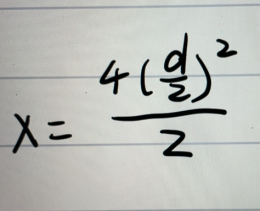 x = \frac{4(\frac{d}{2})^2}{2}